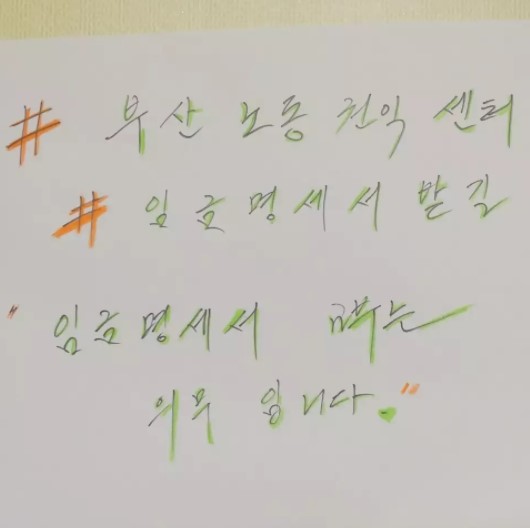 # 부산 노동 권익 센터
# 임금명세서 받길
" 임금명세서 교부는
의무 입니다."